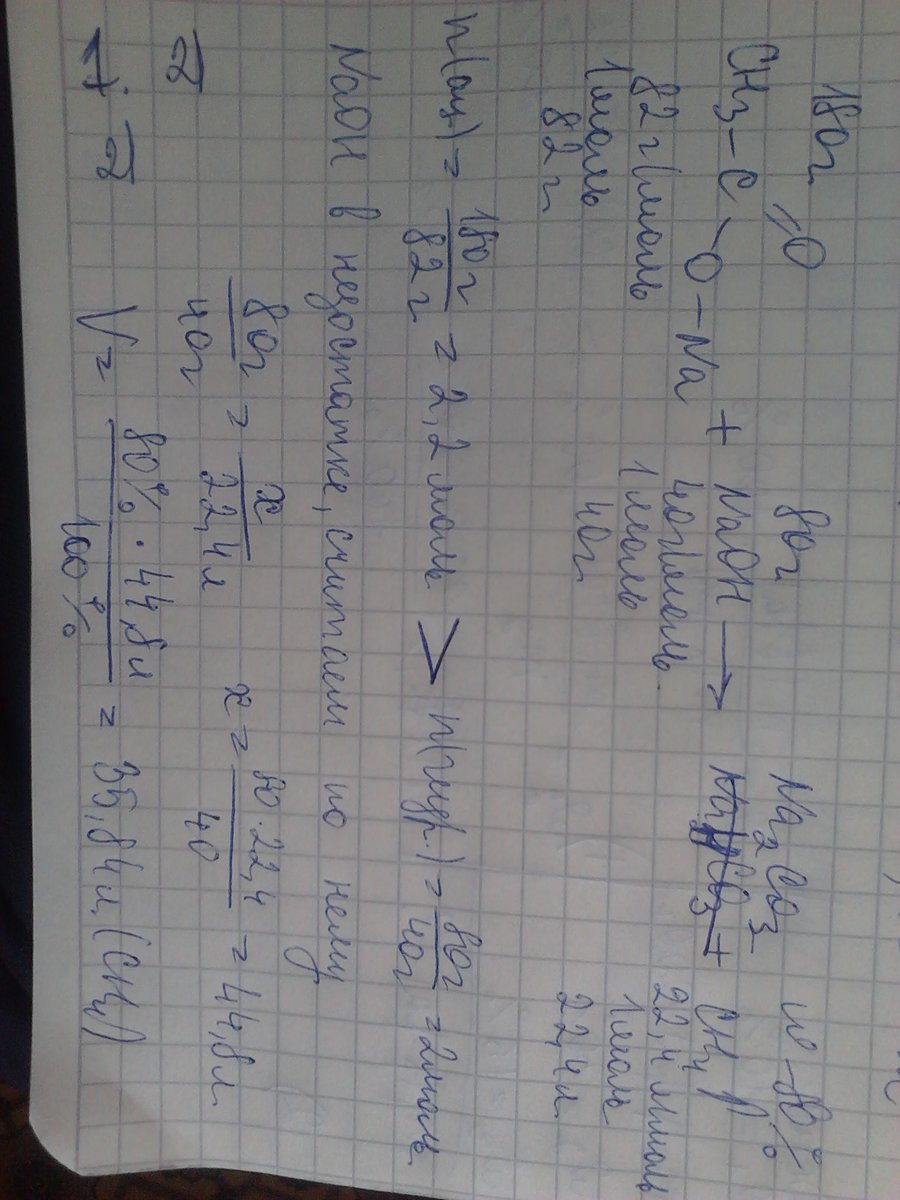 180г 80г w - 80%
CH3 - C =O - O - Na + NaOH → Na2CO3 + CH4 ↑
82 г/моль 40г/моль 22,4 л/моль
1моль 1моль 1моль
82 г 40г 22,4л
n(ац) = 180г / 82г = 2,2 моль > n(гидр.) = 80г / 40г = 2моль
NaOH в недостатке, считаем по нему
2 80г / 40г = x / 22,4л x = 80·22,4 / 40 = 44,8л
1 2 V = 80% · 44,8л / 100% = 35,84л (CH4)